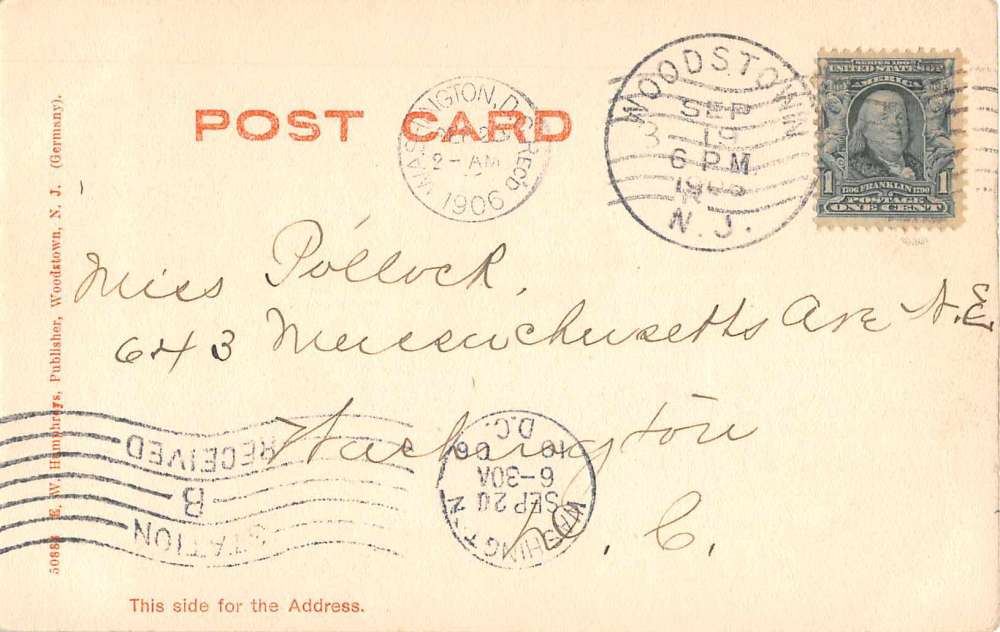 POST CARD
WASHINGTON, D.C. REC'D.
2- AM
1906
WOODSTOWN
SEP
19
6 PM
N. J.
SERIES 1902
UNITED STATES OF
AMERICA
1 1706 FRANKLIN 1790 1
POSTAGE
ONE CENT
Miss Pollock,
643 Massachusetts Ave N.E.
Washington
D. C.
RECEIVED
8
STATION
WASHINGTON
SEP 20
6-30A
1906
D.C.
50888 E. W. Humphreys, Publisher, Woodstown, N. J. (Germany).
This side for the Address.